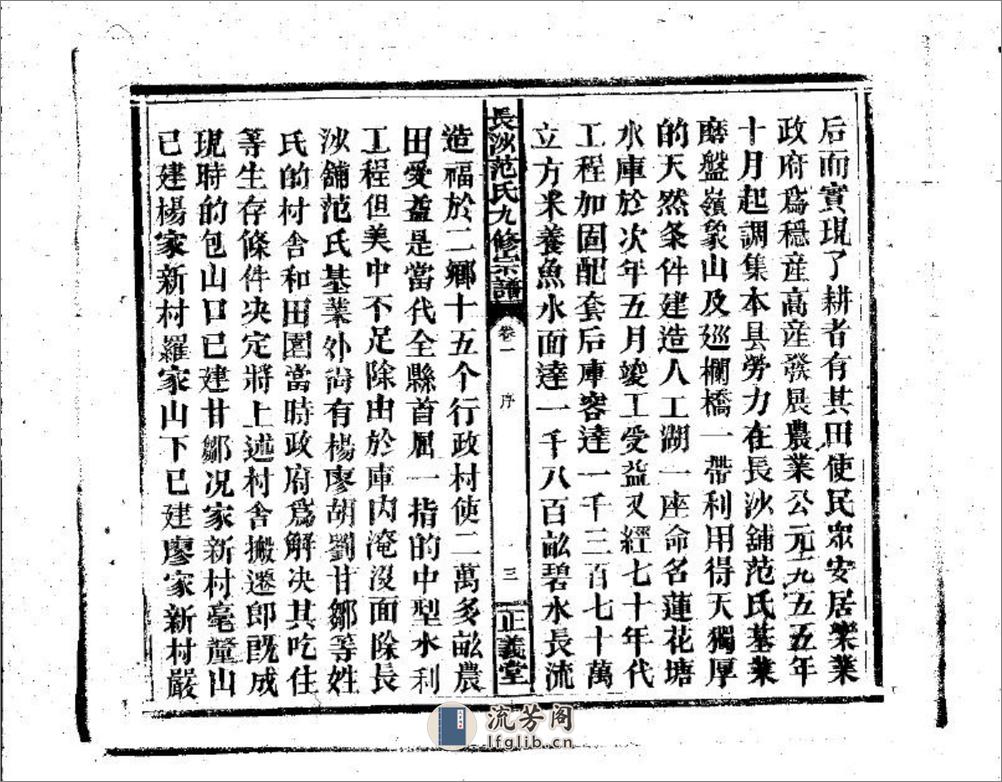 后而實現了耕者有其田使民眾安居樂業
政府爲穩産高産發展農業公元一九五五年
十月起調集本县勞力在長沙舖范氏基業
磨盤嶺象山及廻欄橋一帶利用得天獨厚
的天然条件建造人工湖一座命名蓮花塘
水庫於次年五月竣工受益又經七十年代
工程加固配套后庫容達一千三百七十萬
立方米養魚水面達一千八百畝碧水長流
長沙范氏九修宗譜
卷一
序
三
正義堂
造福於二鄉十五个行政村使二萬多畝農
田受益是當代全縣首屈一指的中型水利
工程但美中不足除由於庫内淹没面除長
沙舖范氏基業外尚有楊廖胡劉甘鄒等姓
氏的村舍和田園當時政府爲解决其吃住
等生存條件决定將上述村舍搬遷郎既成
現時的包山口已建甘鄒况家新村毫董山
已建楊家新村羅家山下已建廖家新村嚴
流芳阁
lfglib.cn